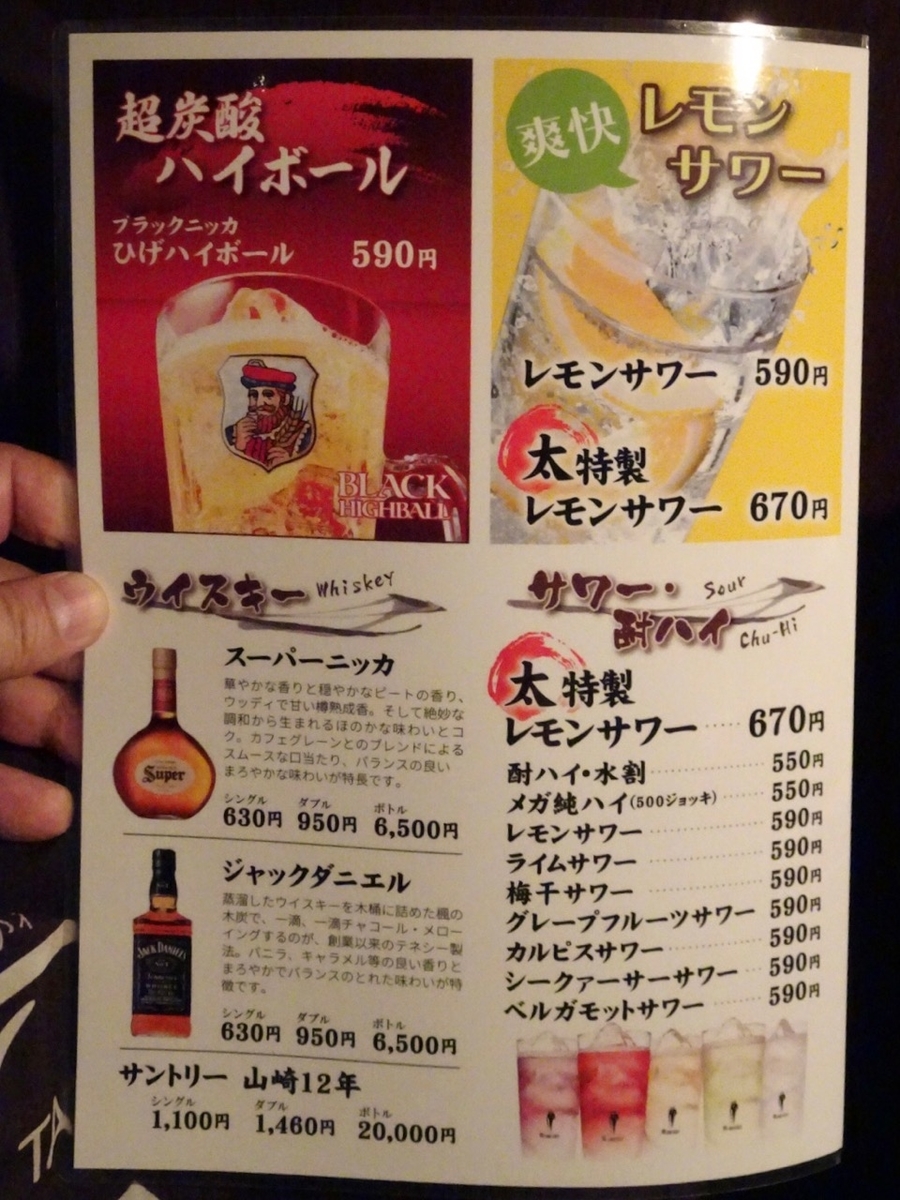 超炭酸
ハイボール
ブラックニッカ
ひげハイボール 590円
BLACK
HIGHBALL
爽快
レモン
サワー
レモンサワー 590円
太特製
レモンサワー 670円
ウイスキー Whiskey
スーパーニッカ
華やかな香りと穏やかなピートの香り、
ウッディで甘い樽熟成香。そして絶妙な
調和から生まれるほのかな味わいとコ
ク。カフェグレーンとのブレンドによる
スムースな口当たり、バランスの良い
まろやかな味わいが特長です。
Super
シングル ダブル ボトル
630円 950円 6,500円
ジャックダニエル
蒸溜したウイスキーを木桶に詰めた楓の
木炭で、一滴、一滴チャコール・メロー
イングするのが、創業以来のテネシー製
法。バニラ、キャラメル等の良い香りと
まろやかでバランスのとれた味わいが特
徴です。
JACK DANIEL'S
シングル ダブル ボトル
630円 950円 6,500円
サントリー 山崎12年
シングル ダブル ボトル
1,100円 1,460円 20,000円
サワー・ Sour
酎ハイ Chu-Hi
太特製
レモンサワー 670円
酎ハイ・水割 550円
メガ純ハイ(500ジョッキ) 550円
レモンサワー 590円
ライムサワー 590円
梅干サワー 590円
グレープフルーツサワー 590円
カルピスサワー 590円
シークァーサーサワー 590円
ベルガモットサワー 590円
TA